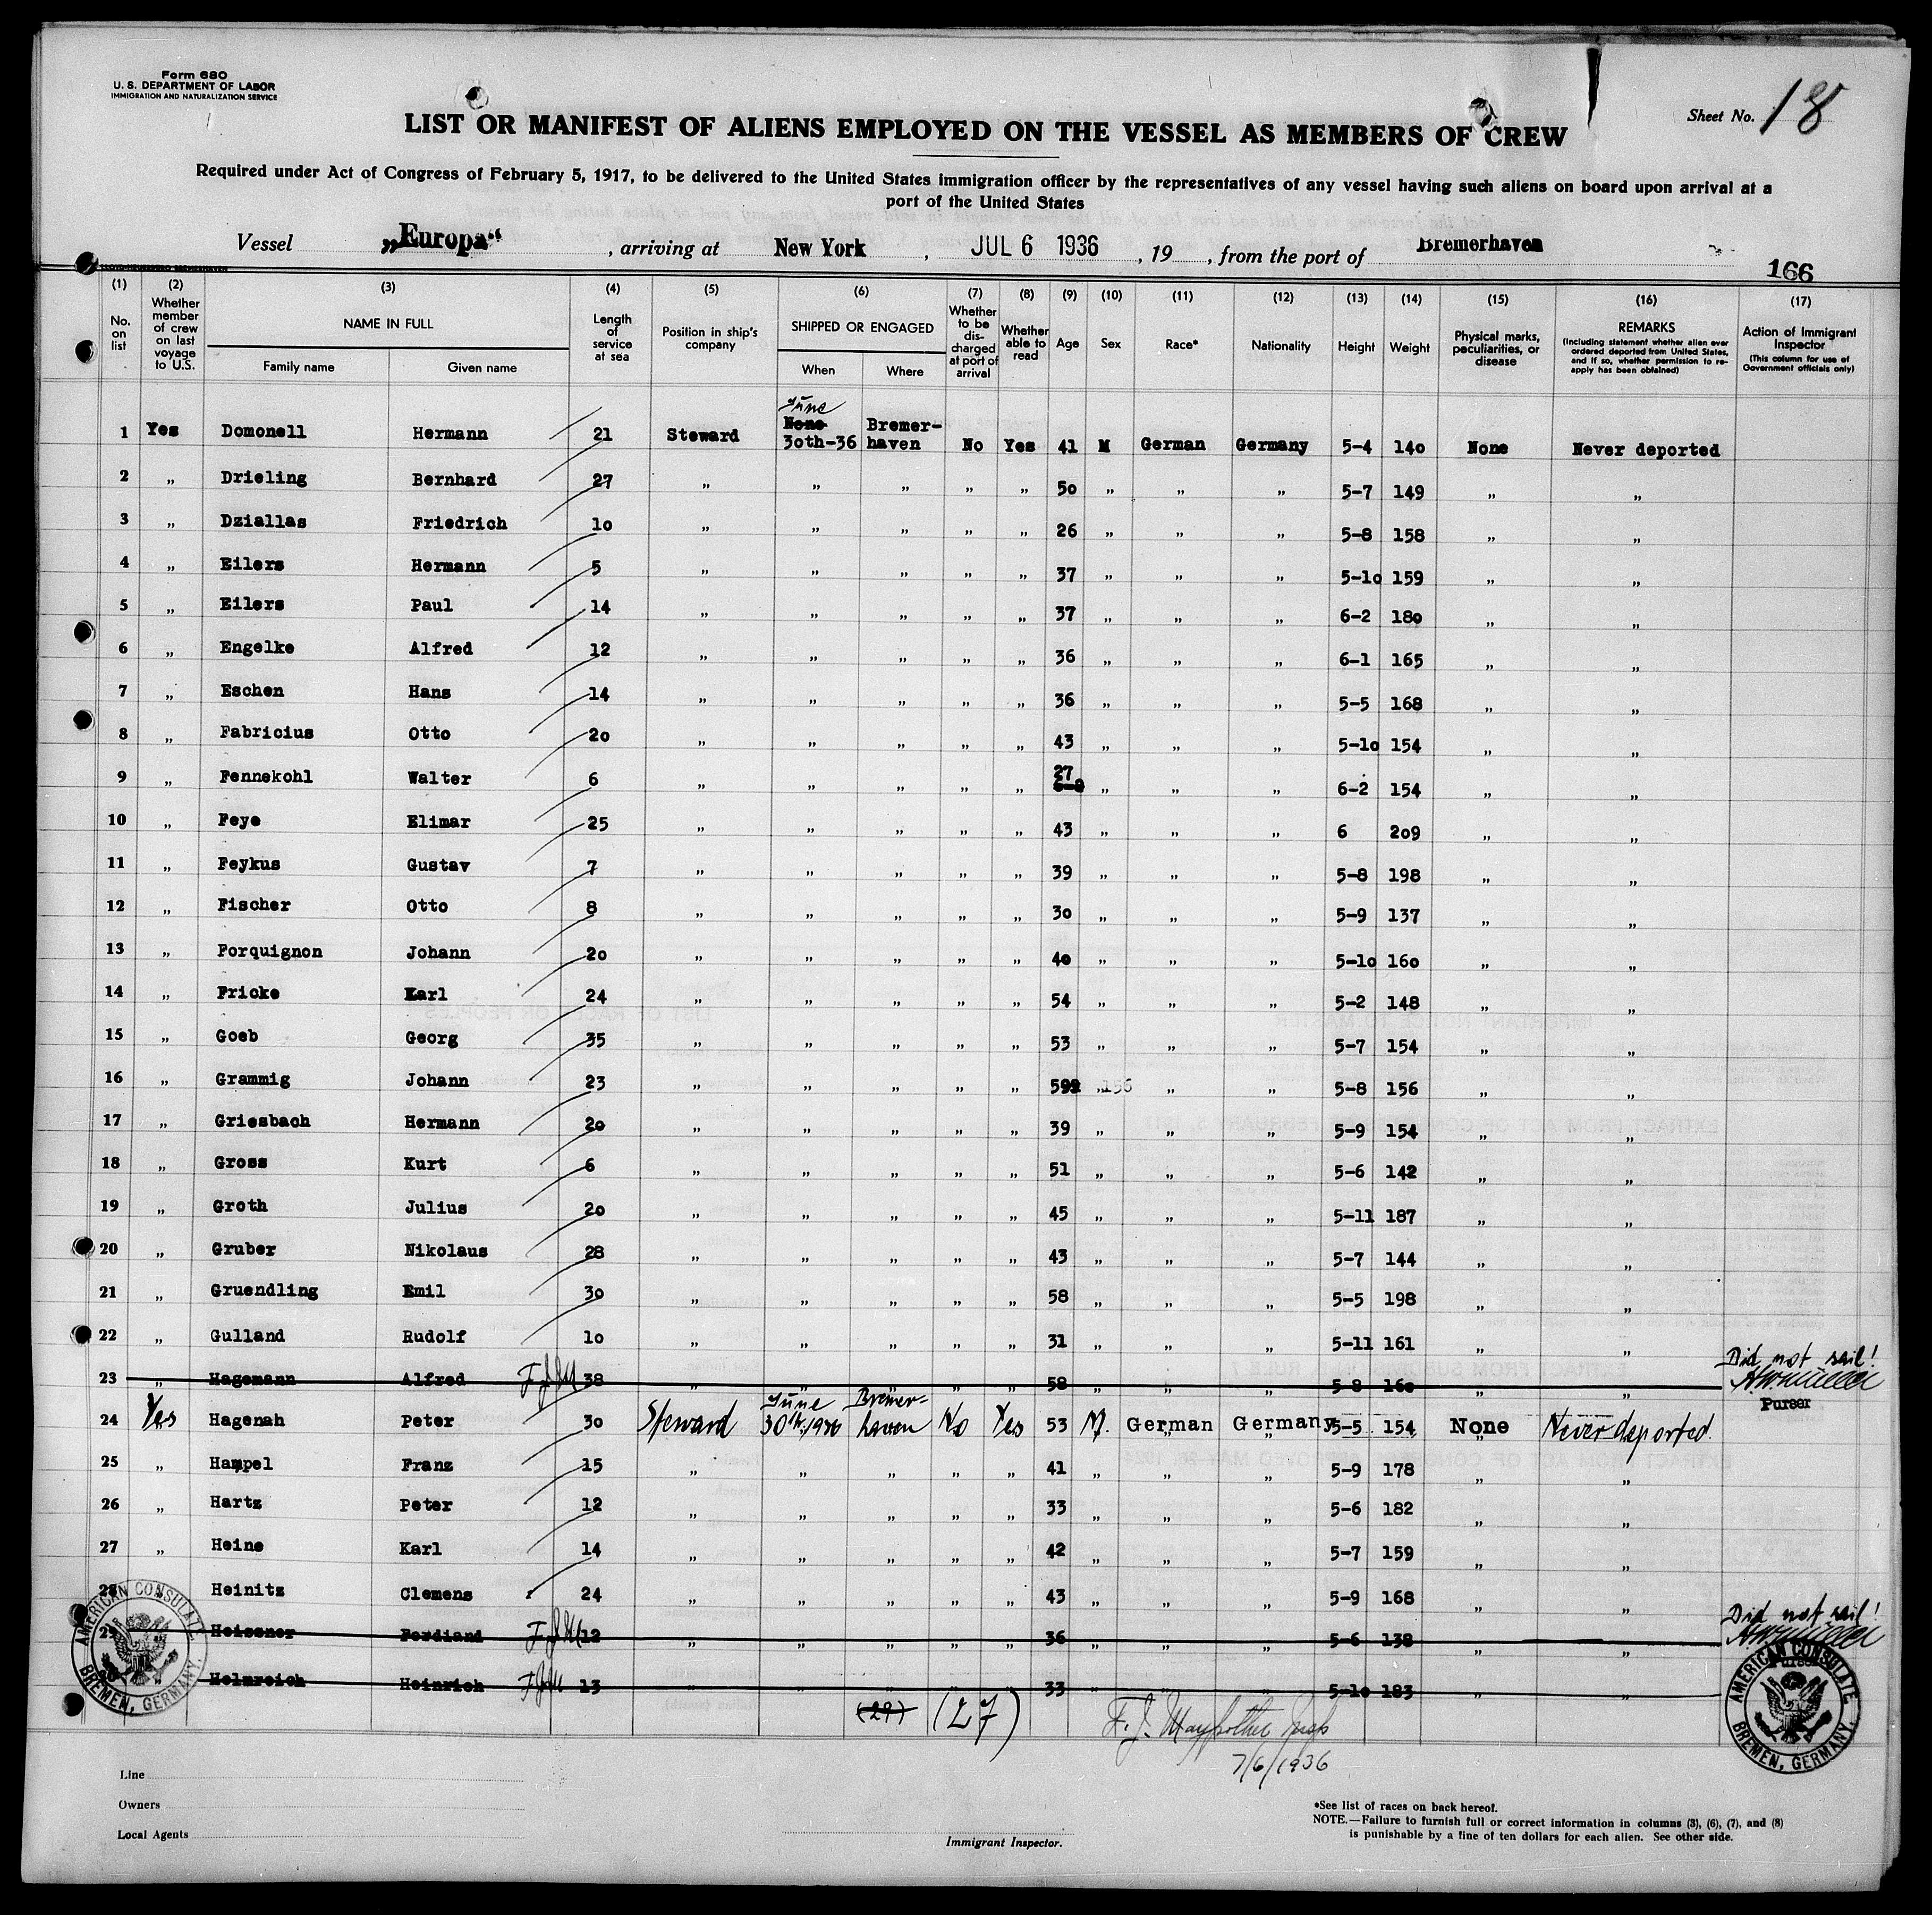 Form 680
U. S. DEPARTMENT OF LABOR
IMMIGRATION AND NATURALIZATION SERVICE
Sheet No. 18
LIST OR MANIFEST OF ALIENS EMPLOYED ON THE VESSEL AS MEMBERS OF CREW
Required under Act of Congress of February 5, 1917, to be delivered to the United States immigration officer by the representatives of any vessel having such aliens on board upon arrival at a
port of the United States
Vessel „Europa“, arriving at New York, JUL 6 1936, 19 , from the port of Bremerhaven
166
(1) No. on list
(2) Whether member of crew on last voyage to U.S.
(3) NAME IN FULL Family name Given name
(4) Length of service at sea
(5) Position in ship's company
(6) SHIPPED OR ENGAGED When Where
(7) Whether to be dis-charged at port of arrival
(8) Whether able to read
(9) Age
(10) Sex
(11) Race*
(12) Nationality
(13) Height
(14) Weight
(15) Physical marks, peculiarities, or disease
(16) REMARKS (Including statement whether alien ever ordered deported from United States, and if so, whether permission to re-apply has been obtained)
(17) Action of Immigrant Inspector (This column for use of Government officials only)
1 Yes Domonell Hermann 21 Steward June None 30th-36 Bremer-haven No Yes 41 M German Germany 5-4 140 None Never deported
2 „ Drieling Bernhard 27 „ „ „ „ „ 50 „ „ „ 5-7 149 „ „
3 „ Dziallas Friedrich 10 „ „ „ „ „ 26 „ „ „ 5-8 158 „ „
4 „ Eilers Hermann 5 „ „ „ „ „ 37 „ „ „ 5-10 159 „ „
5 „ Eilers Paul 14 „ „ „ „ „ 37 „ „ „ 6-2 180 „ „
6 „ Engelke Alfred 12 „ „ „ „ „ 36 „ „ „ 6-1 165 „ „
7 „ Eschen Hans 14 „ „ „ „ „ 36 „ „ „ 5-5 168 „ „
8 „ Fabricius Otto 20 „ „ „ „ „ 43 „ „ „ 5-10 154 „ „
9 „ Fennekohl Walter 6 „ „ „ „ „ 27 „ „ „ 6-2 154 „ „
10 „ Feye Elimar 25 „ „ „ „ „ 43 „ „ „ 6 209 „ „
11 „ Feykus Gustav 7 „ „ „ „ „ 39 „ „ „ 5-8 198 „ „
12 „ Fischer Otto 8 „ „ „ „ „ 30 „ „ „ 5-9 137 „ „
13 „ Forquignon Johann 20 „ „ „ „ „ 40 „ „ „ 5-10 160 „ „
14 „ Fricke Karl 24 „ „ „ „ „ 54 „ „ „ 5-2 148 „ „
15 „ Goeb Georg 35 „ „ „ „ „ 53 „ „ „ 5-7 154 „ „
16 „ Grammig Johann 23 „ „ „ „ „ „ 156 „ „ 5-8 156 „ „
17 „ Griesbach Hermann 20 „ „ „ „ „ 39 „ „ „ 5-9 154 „ „
18 „ Gross Kurt 6 „ „ „ „ „ 51 „ „ „ 5-6 142 „ „
19 „ Groth Julius 20 „ „ „ „ „ 45 „ „ „ 5-11 187 „ „
20 „ Gruber Nikolaus 28 „ „ „ „ „ 43 „ „ „ 5-7 144 „ „
21 „ Gruendling Emil 30 „ „ „ „ „ 58 „ „ „ 5-5 198 „ „
22 „ Gulland Rudolf 10 „ „ „ „ „ 31 „ „ „ 5-11 161 „ „
23 „ Hagemann Alfred 38 „ „ „ „ „ 58 „ „ „ 5-8 160 „ „ Did not sail!
Purser
24 Yes Hagenah Peter 30 Steward June 30th,1936 Bremer-haven No Yes 53 M. German Germany 5-5 154 None Never deported.
25 „ Hampel Franz 15 „ „ „ „ „ 41 „ „ „ 5-9 178 „ „
26 „ Hartz Peter 12 „ „ „ „ „ 33 „ „ „ 5-6 182 „ „
27 „ Heine Karl 14 „ „ „ „ „ 42 „ „ „ 5-7 159 „ „
28 „ Heinitz Clemens 24 „ „ „ „ „ 43 „ „ „ 5-9 168 „ „
29 „ Heissner Ferdiand 12 „ „ „ „ „ 36 „ „ „ 5-6 138 „ „ Did not sail!
30 „ Helmreich Heinrich 13 „ „ „ „ „ 33 „ „ „ 5-10 183 „ „
(29) (27)
7/6/1936
AMERICAN CONSULATE. BREMEN, GERMANY.
AMERICAN CONSULATE. BREMEN, GERMANY.
Line
Owners
Local Agents
Immigrant Inspector.
*See list of races on back hereof.
NOTE.—Failure to furnish full or correct information in columns (3), (6), (7), and (8)
is punishable by a fine of ten dollars for each alien. See other side.